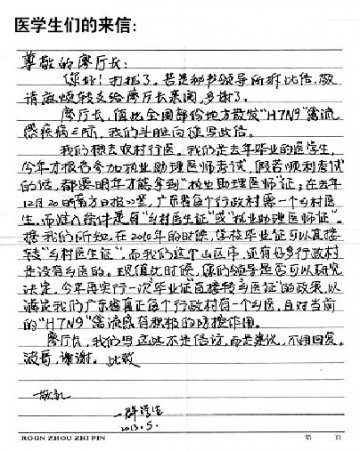 医学生们的来信:
尊敬的廖厅长:
您好!打扰了。若是秘书领导所拆此信,敬
请麻烦转交给廖厅长亲阅,多谢了。
廖厅长,值此全国部份地方散发“H7N9”禽流
感疾病之际,我们斗胆向您写此信。
我们想去农村行医,我们是去年毕业的医学生,
今年才报名参加执业助理医师考试,假若顺利考试
的话,都要明年才能拿到“执业助理医师”证;在去年
12月20日南方日报公bd,广东省每个行政村需一个乡村医
生,而准入条件是有“乡村医生证”或“执业助理医师证”。
据我们所知,在2010年的时候,学校毕业证可以直接
转“乡村医生证”,而我们这个山区市,还有好多行政村
是没有乡医的。现值此时候,您们领导是否可以研究
决定,今年再实行一次“毕业证直接转乡医证”的政策,以
满足我们广东省真正每个行政村有一个乡医,且对当前
的“H7N9”禽流感有积极的防控作用。
廖厅长,我们写这还不是信访,而是建议,不用回复,
谢谢。此致
敬礼
一群医生
2013.5.
RONG ZHOU ZHI PIN 第 页